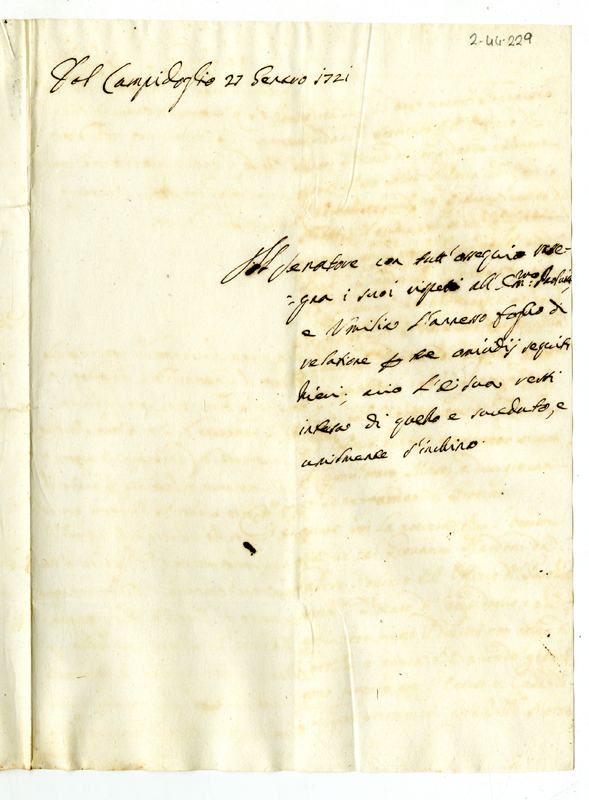 2-44-229
Dal Campidoglio 27 Genaro 1721
Il Senatore con tutt'ossequio rasse=
=gna i suoi rispetti all' Em.mo Paolucci,
e Umilia l'annesso foglio di
relatione per tre omicidij seguiti
hieri; acciò l'E. sua resti
intesa di quello è succeduto, e
umilmente s'inchina.